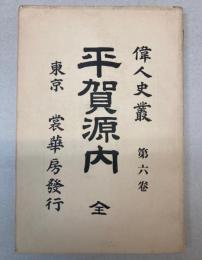 偉人史叢 第六卷
平賀源内 全
東京 裳華房發行